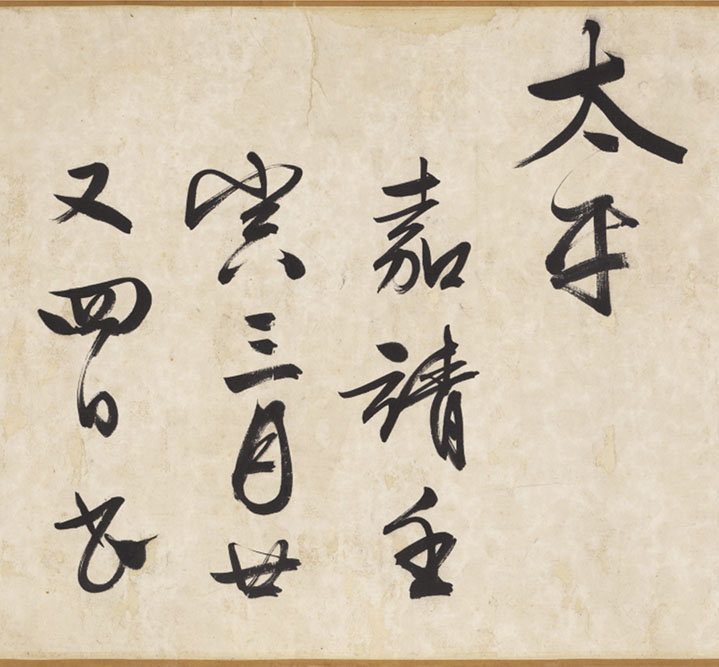 太平
嘉靖壬
寅三月廿
又四日書